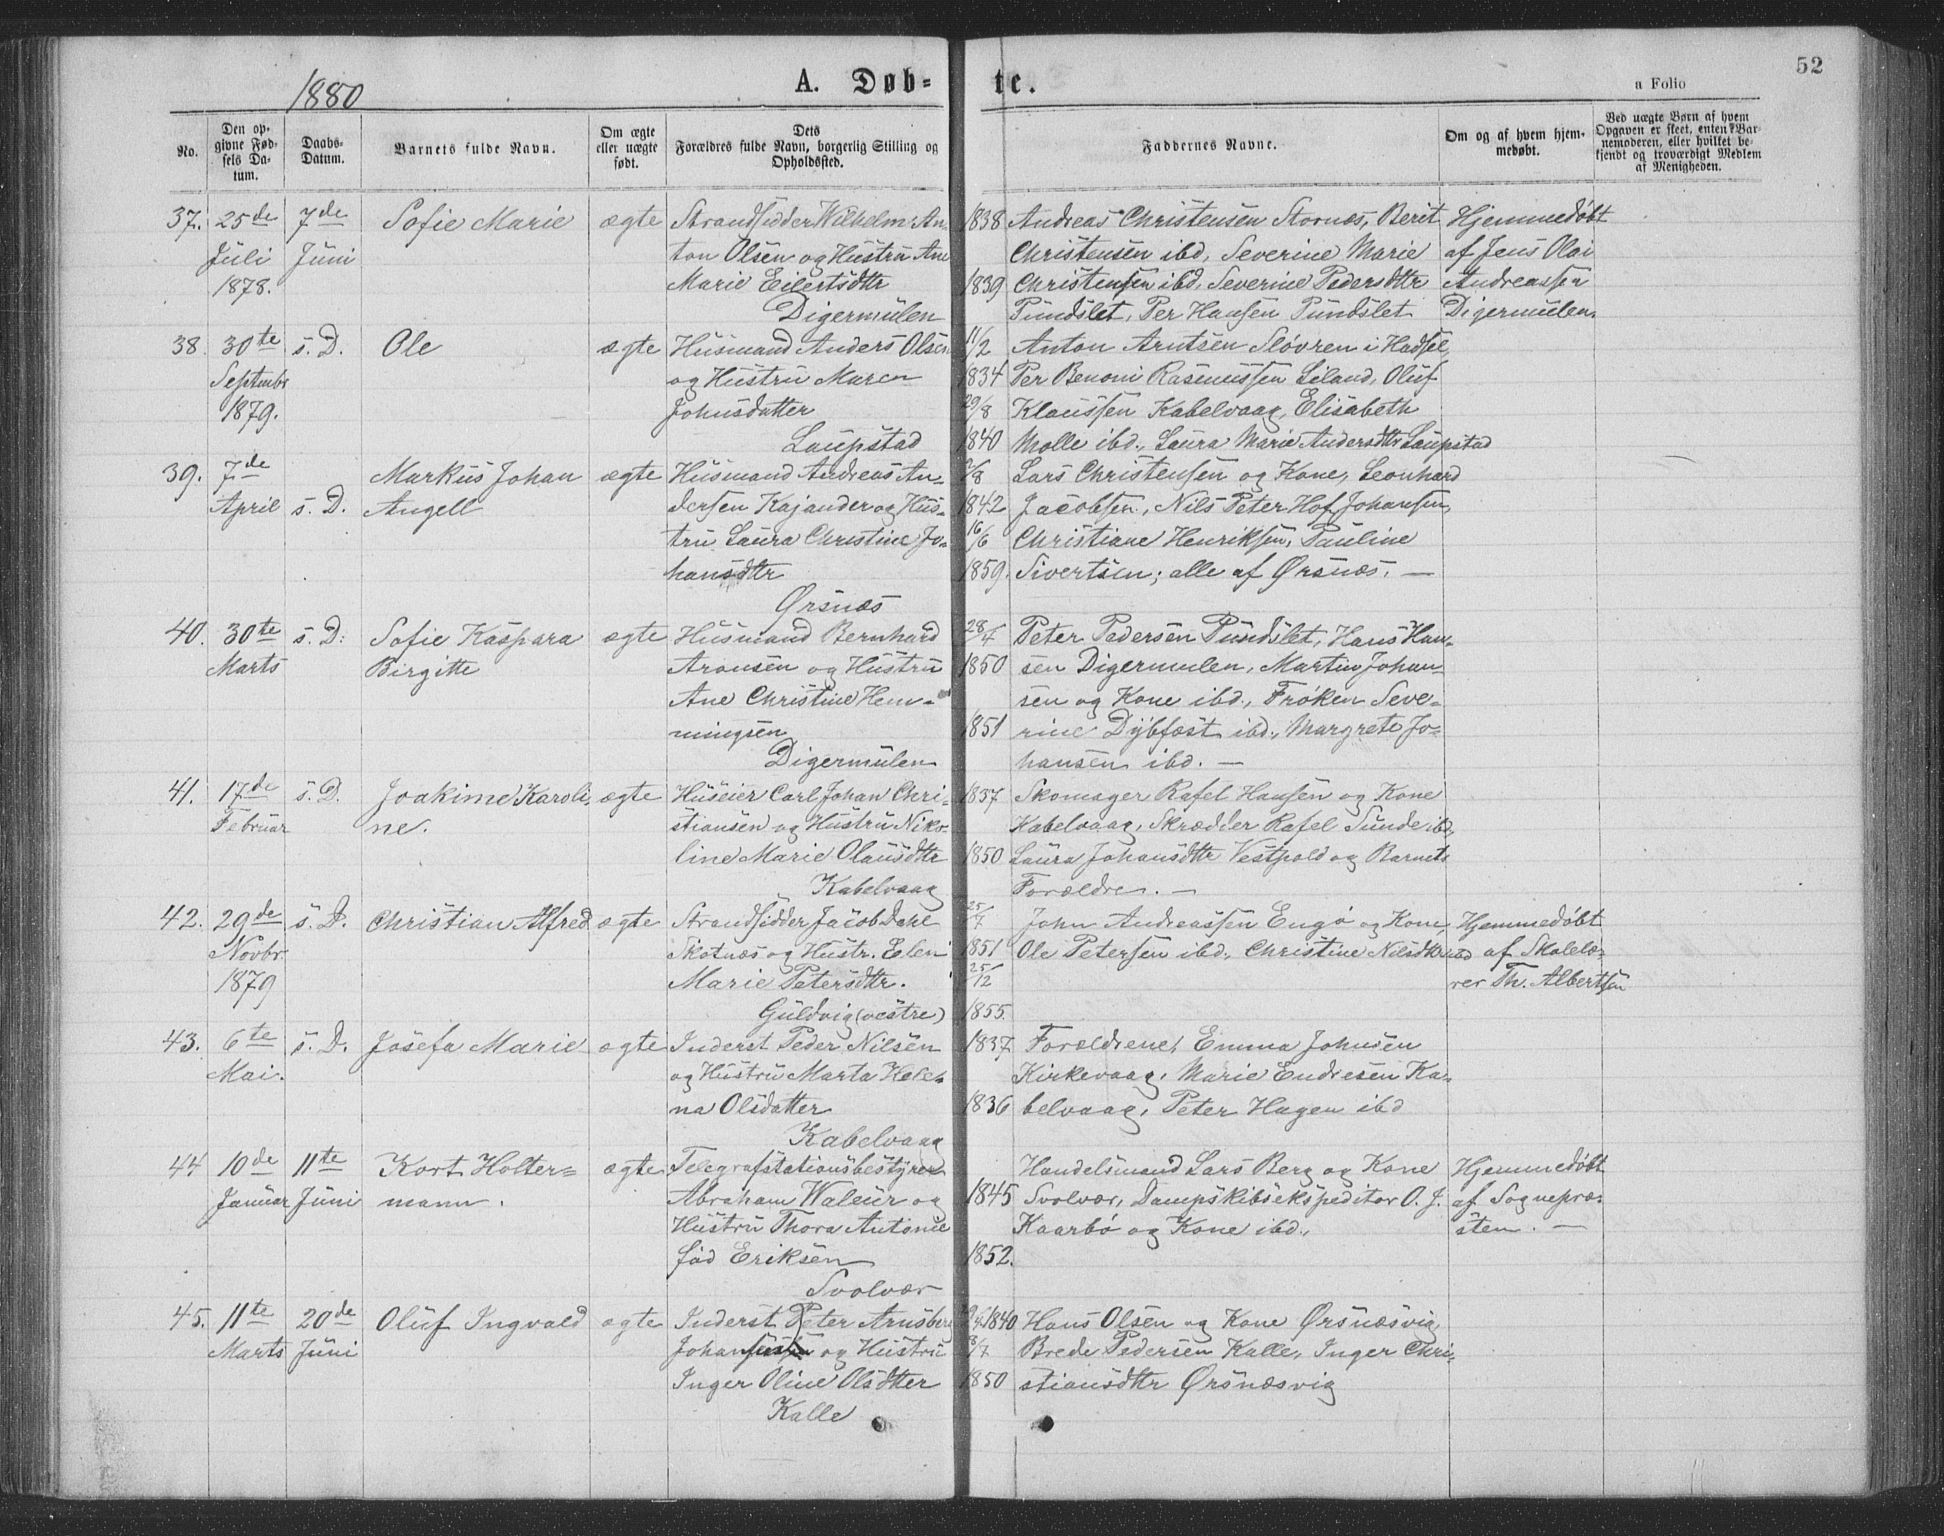 52
1880
A. Døb-
te.
a Folio
No.
Den op-
givne Fød-
sels Da-
tum.
Daabs-
Datum.
Barnets fulde Navn.
Om ægte
eller uægte
født.
Dets
Forældres fulde Navn, borgerlig Stilling og
Opholdssted.
Faddernes Navne.
Om og af hvem hjem-
medøbt.
Ved uægte Børn af hvem
Opgaven er skeet, enten Bar-
nemoderen, eller hvilket be-
kjendt og troværdigt Medlem
af Menigheden.
37. 25de 7de Sofie Marie ægte Strandsidder Wilhelm An- 1838 Andreas Christensen Stornæs, Berit Hjemmedøbt
Juli Juni ton Olsen og Hustru Ane Christensen ibd, Severine Marie af Jens Olai
1878. Marie Eilertsdtr 1839 Christensen ibd. Severine Pedersdtr Andreassen
Digermulen Pundslet, Per Hansen Pundslet Digermulen.
38. 30te s. D. Ole ægte Husmand Anders Olsen 11/2 Anton Arntsen Sløvren i Hadsel,
Septembr og Hustru Maren 1834 Per Benoni Rasmussen Liland, Oluf
1879. Johnsdatter 29/8 Klaussen Kabelvaag, Elisabeth
Laupstad 1840 Molle ibd., Laura Marie Andersdtr Laupstad
39. 7de Markus Johan ægte Husmand Andreas An- /8 Lars Christensen og Kone, Leonhard
April s. D. Angell dersen Kajander og Hus- 1842 Jacobsen, Nils Peter Hof Johansen,
tru Laura Christine Jo- 16/6 Christiane Henriksen, Pauline
hansdtr 1859. Sivertsen; alle af Ørsnæs. —
Ørsnæs
40. 30te s. D. Sofie Kaspara ægte Husmand Bernhard 28/7 Peter Pedersen Pundslet, Hans Han-
Marts Birgitte Aronsen og Hustru 1850 sen Digermulen, Martin Johan-
Ane Christine Hem- sen og Kone ibd., Frøken Seve-
mingsen 1851 rine Dybfæst ibd., Margrete Jo-
Digermulen hansen ibd. —
41. 17de s. D. Joakime Karoli ægte Huseier Carl Johan Chri- 1837 Skomager Rafel Hansen og Kone
Februar ne. stiansen og Hustru Niko- Kabelvaag, Skrædder Rafel Sunde ibd,
line Marie Olausdtr 1850 Laura Johansdtr Vestpold og Barnets
Kabelvaag Forældre. —
42. 29de s. D. Christian Alfred ægte Strandsidder Jacob Dahl 25/7 John Andreassen Engø og Kone, Hjemmedøbt
Novbr. Skotnæs og Hustr. Elen 1851 Ole Petersen ibd., Christine Nilsdtr ibd af Skolelæ-
1879 Marie Petersdtr. 25/12 rer Th. Albertsen
Guldvig (vestre) 1855.
43. 6te s. D. Josefa Marie ægte Inderst Peder Nilsen 1837 Forældrene, Emma Johnsen
Mai. og Hustru Marta Hele- Kirkevaag, Marie Endresen Ka-
na Olsdatter 1836 belvaag, Peter Hagen ibd
Kabelvaag
44 10de 11te Kort Holter- ægte Telegrafstationsbestyrer Handelsmand Lars Berg og Kone Hjemmedøbt
Januar Juni mann. Abraham Waleur og 1845 Svolvær, Dampskibsekspeditor O. J. af Sognepræ-
Hustru Thora Antonie Kaarbø og Kone ibd., sten. —
fød Eriksen 1852.
Svolvær
45. 11te 20de Oluf Ingvald ægte Inderst Peter Arnsberg 1840 Hans Olsen og Kone Ørsnæsvig,
Marts Juni Johan og Hustru 8/7 Brede Pedersen Kalle, Inger Chri-
Inger Oline Olsdtter 1850 stiansdtr Ørsnæsvig
Kalle